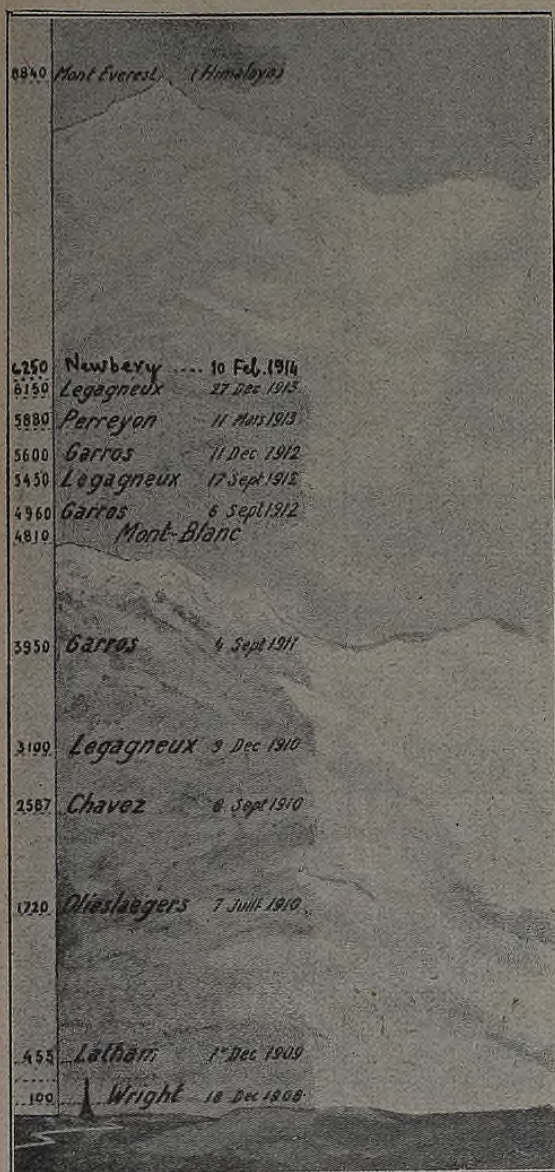 8840 Mont Everest (Himalaya)
6250 Newbery .... 10 Feb. 1914
6150 Legagneux 27 Dec 1913
5880 Perreyon 11 Mars 1913
5600 Garros 11 Dec 1912
5450 Legagneux 17 Sept 1912
4960 Garros 6 Sept 1912
4810 Mont-Blanc
3950 Garros 4 Sept 1911
3100 Legagneux 9 Dec 1910
2587 Chavez 8 Sept 1910
1720 Olieslaegers 7 Juill 1910
455 Latham 1er Dec 1909
100 Wright 18 Dec 1908